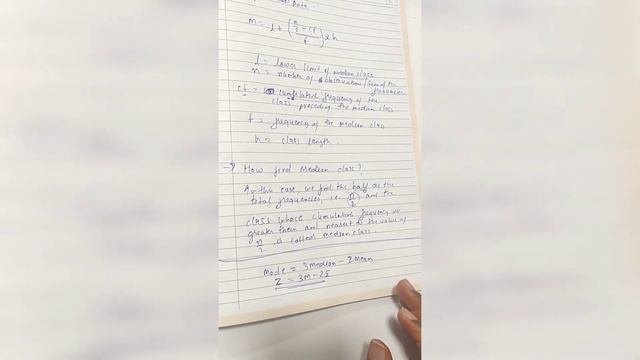 M = l + (n/2 - cf / f) × h
l = lower limit of median class
n = number of observation / sum of the frequencies
cf = cumulative frequency of the
class preceding the median class
f = frequency of the median class
h = class length.
→ How find Median class?
In this case, we find the half of the
total frequencies, i.e. n/2 and the
class whose cumulative frequency is
greater them and nearest to the value of
n/2 is called median class.
Mode = 3 Median - 2 Mean
Z = 3M - 2x̄